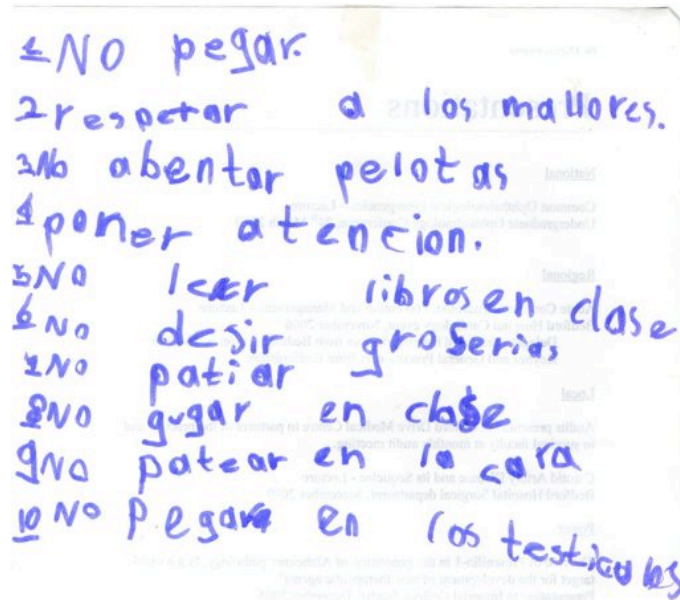 1 NO pegar.
2 respetar a los mallores.
3 No abentar pelotas
4 poner atencion.
5 NO leer libros en clase
6 NO desir groserias
7 NO patiar
8 NO gugar en clase
9 NO patear en la cara
10 NO Pegar en los testiculos